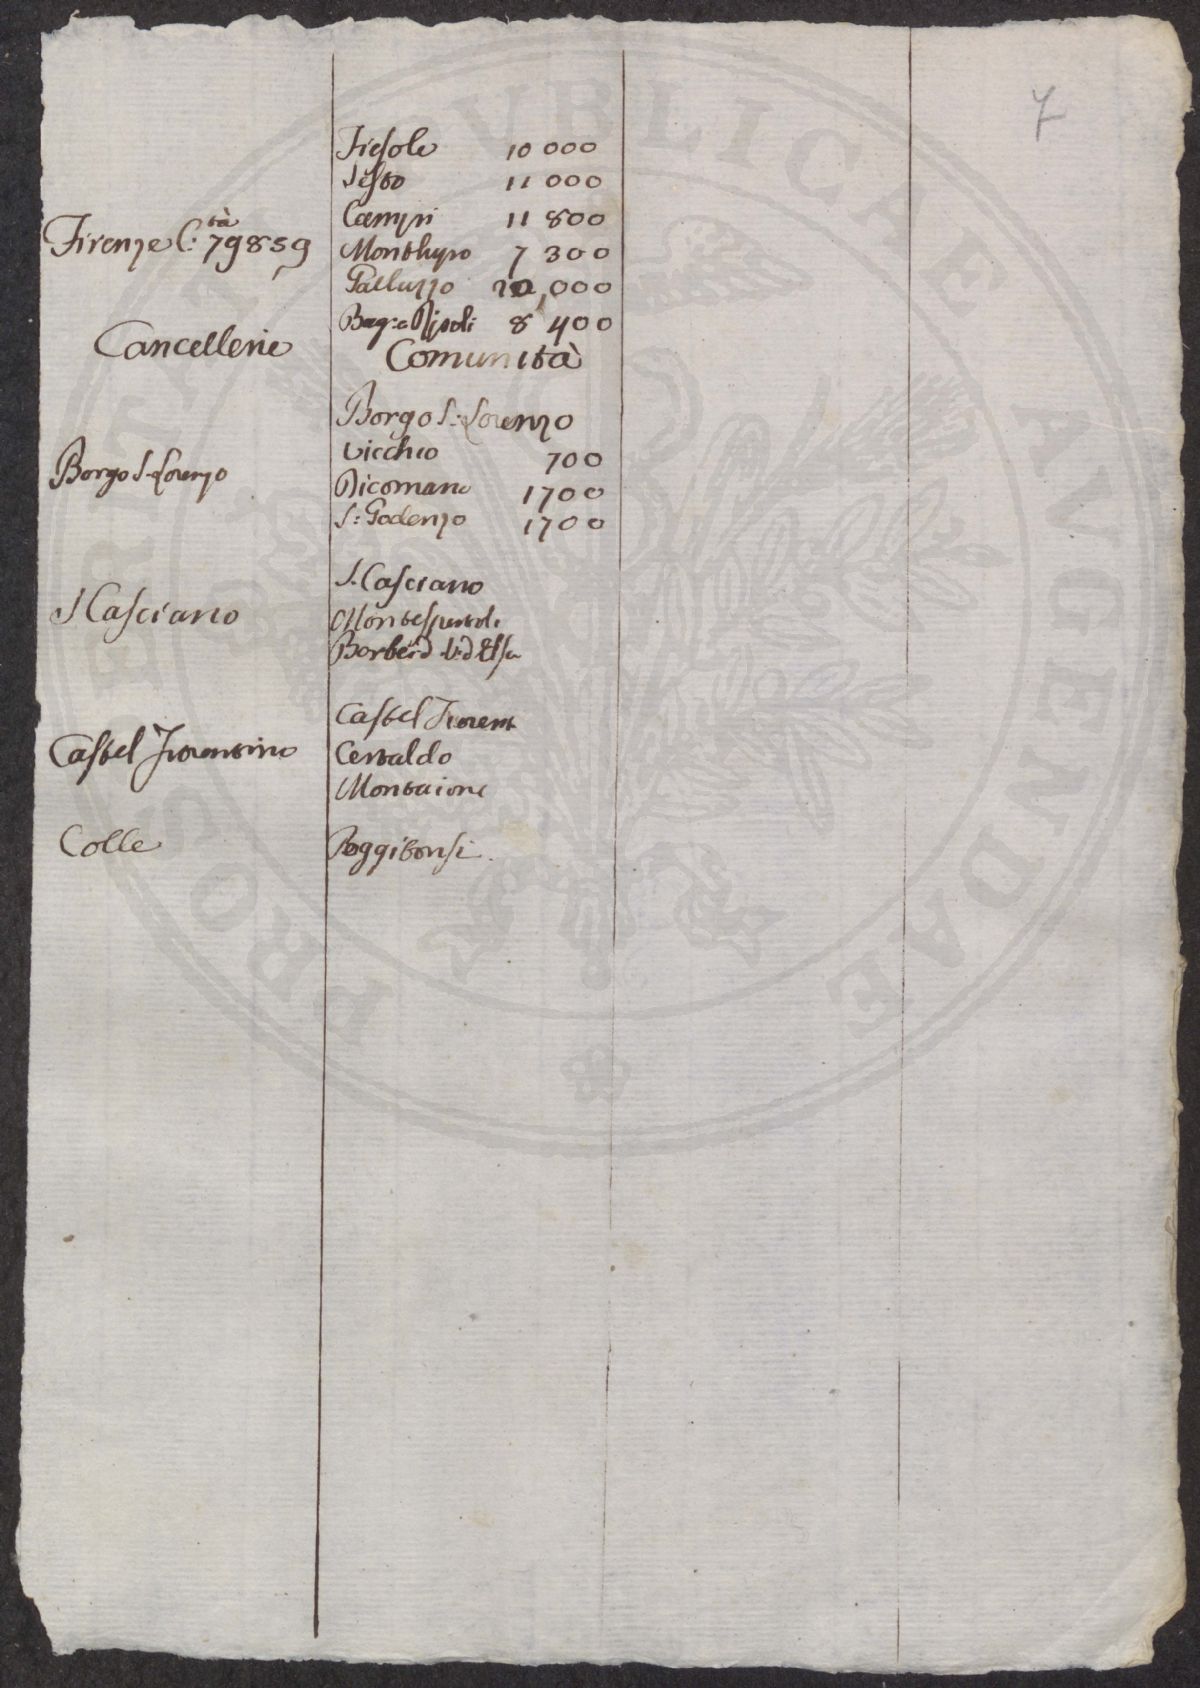 7
Fiesole 10 000
Sesto 11 000
Campi 11 800
Firenze C:tà 79859
Montelupo 7 300
Galluzzo 000
Bag:o Ripoli 8 400
Cancellerie Comunità
Borgo S: Lorenzo
Vicchio 700
Borgo S. Lorenzo
Dicomano 1700
S: Godenzo 1700
S. Casciano
S Casciano
Montespertoli
Barber:o d V:d Elsa
Castel Fiorent
Castel Fiorentino
Certaldo
Montaione
Colle Poggibonsi
PROSPERITATI PVBLICAE AVGENDAE